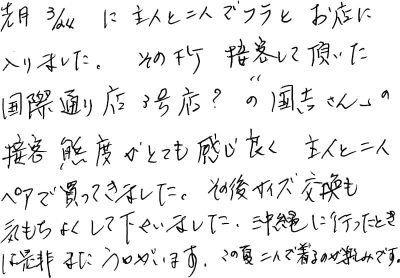 先月 3/24 に主人と二人でフラとお店に
入りました。その折 接客して頂いた
国際通り店 3号店? の"国吉さん"の
接客 態度がとても感じ良く 主人と二人
ペアで買ってきました。その後サイズ交換も
気もちよくして下さいました。沖縄に行ったとき
は是非またうかがいます。この夏二人で着るのが楽しみです。